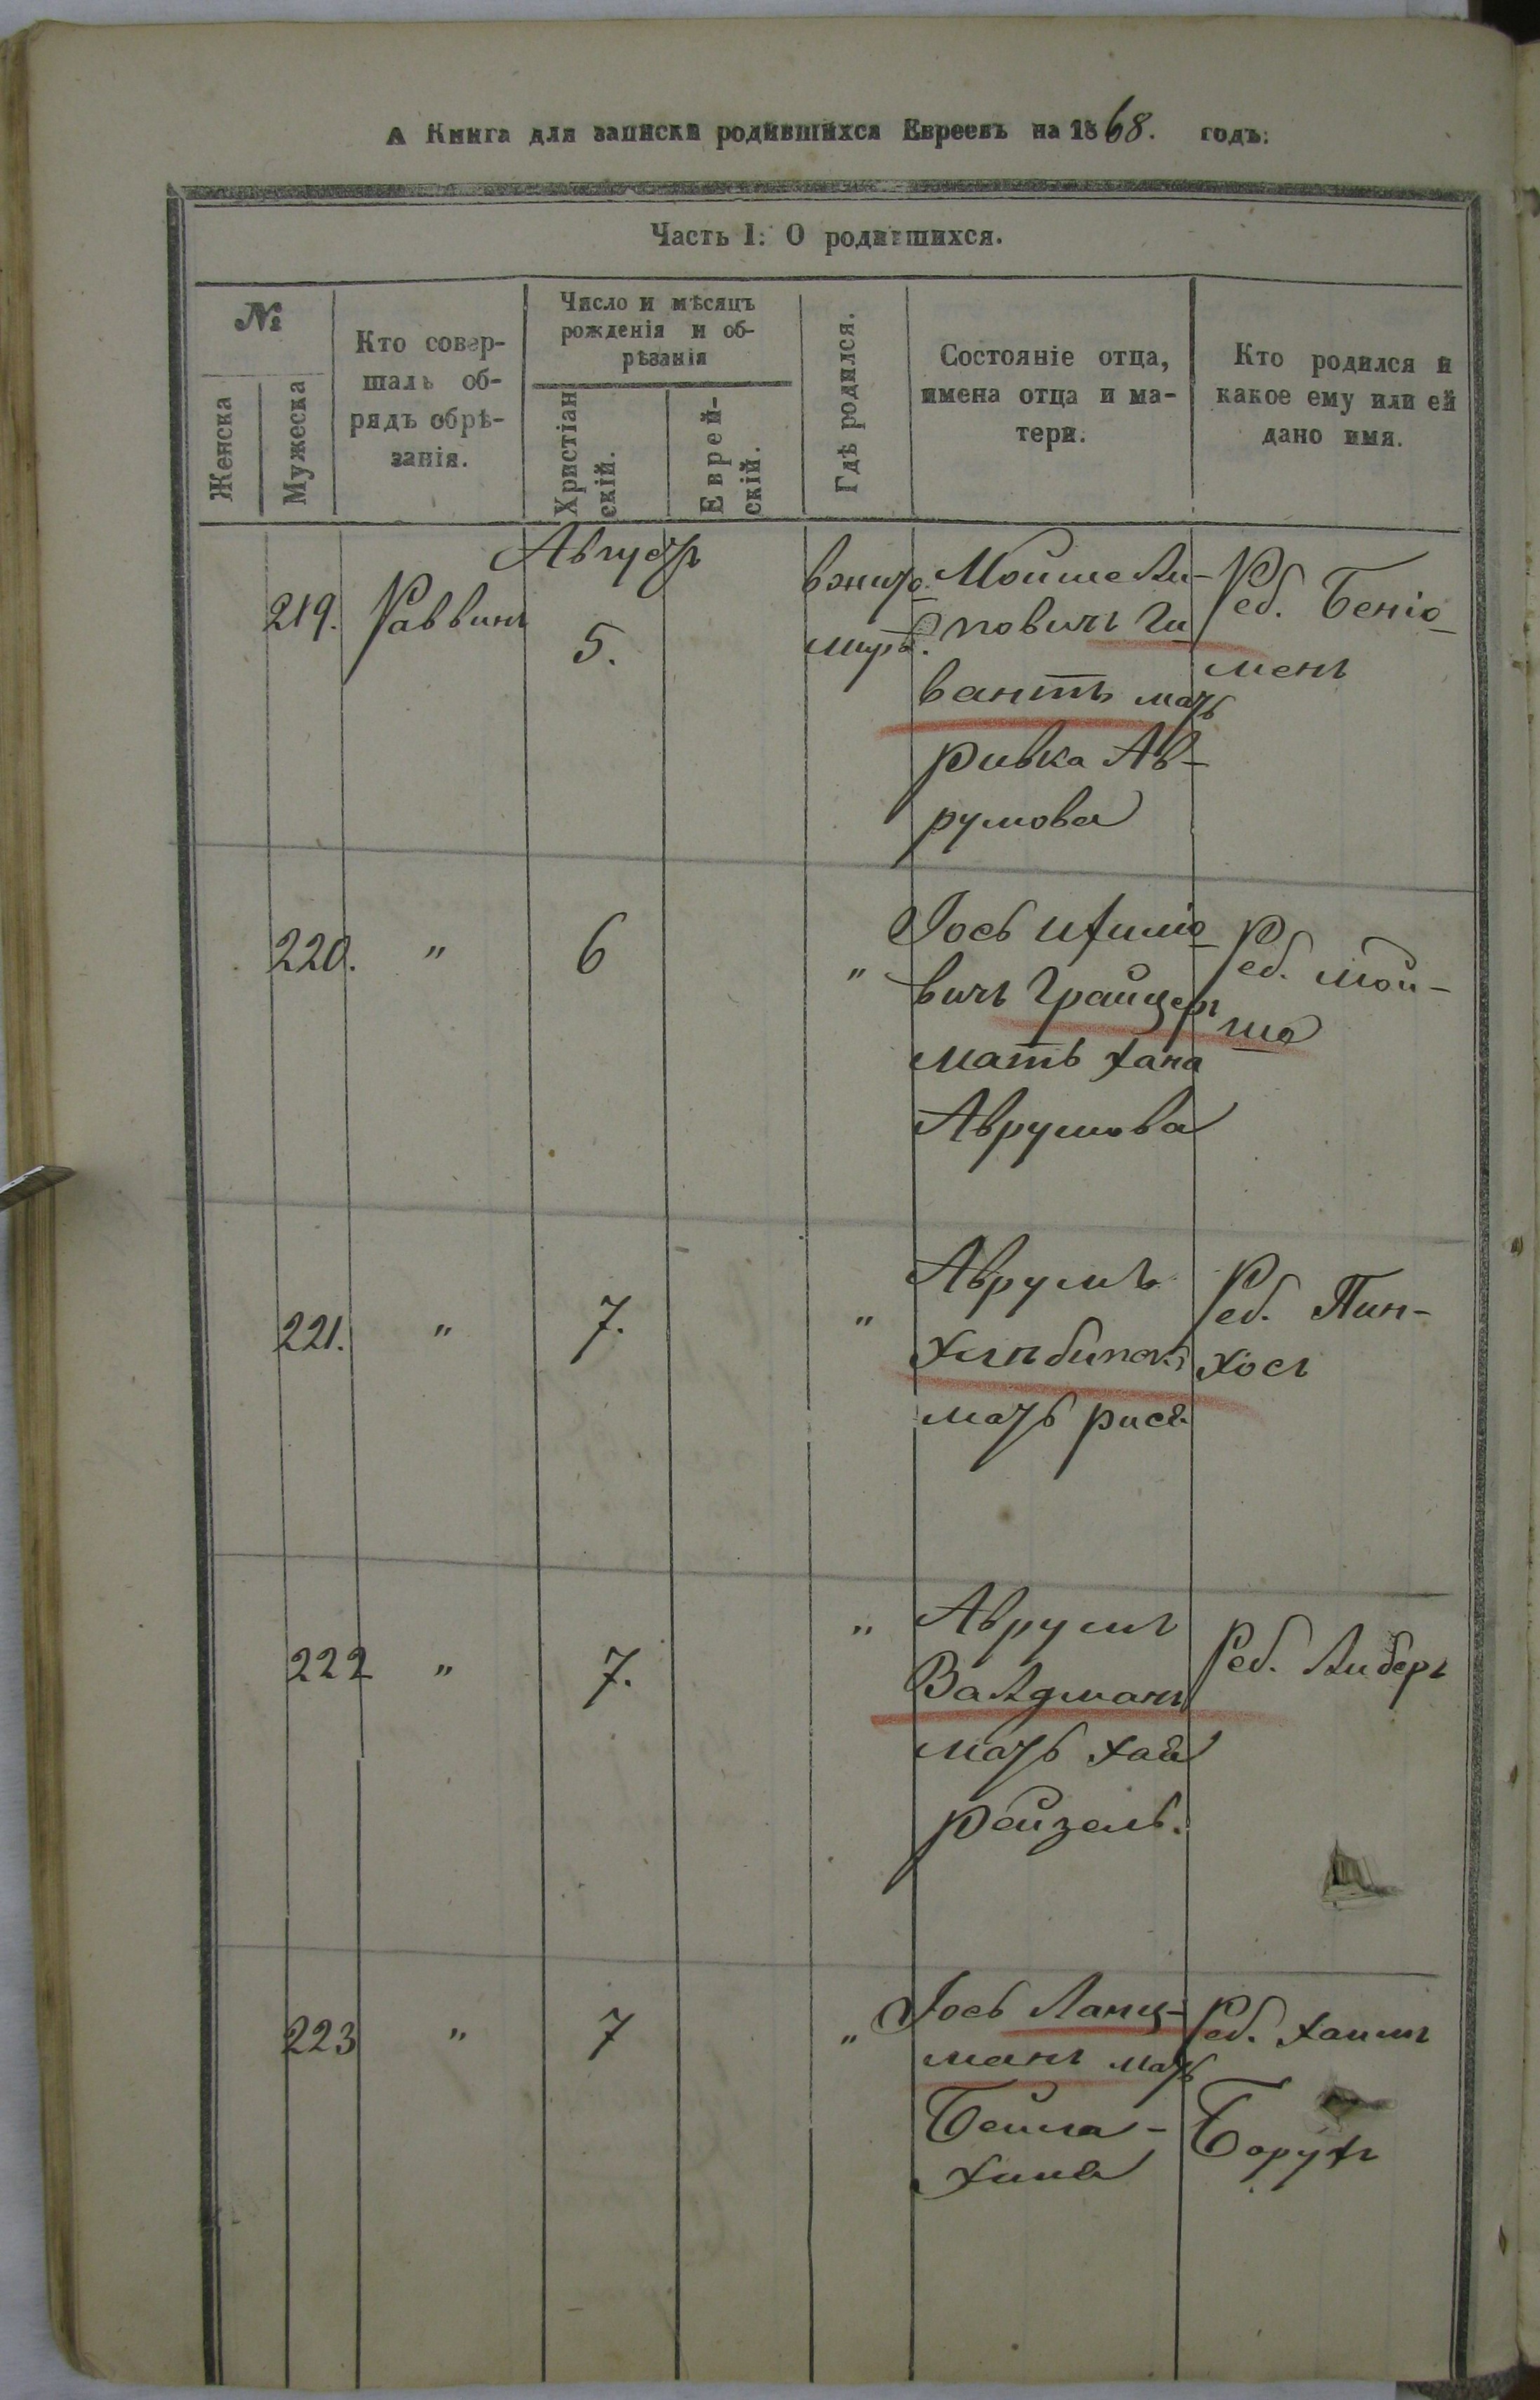 А Книга для записки родившихся Евреевъ на 1868. годъ:
Часть I: О родившихся.
№
Женска
Мужеска
Кто совер-
шалъ об-
рядъ обрѣ-
занія.
Число и мѣсяцъ
рожденія и об-
рѣзанія
Христіан
скій.
Еврей-
скій.
Гдѣ родился.
Состояніе отца,
имена отца и ма-
тери.
Кто родился и
какое ему или ей
дано имя.
Августъ
219.
Раввинъ
5.
вжито
миръ.
Мойше Ли-
повичъ Ги
вантъ мать
ривка Ав-
румова
Реб. Беніо-
менъ
220.
"
6
"
Іось
вичъ Грайцеръ
мать хана
Аврумова
Реб. Мой-
ше
221.
"
7.
"
Аврумъ
мать риса
Реб. Пин-
хосъ
222
"
7.
"
Аврумъ
Валдманъ
мать хая
рейзель.
Реб. Либеръ
223
"
7
"
Іось Ланц-
манъ мать
Бейла-
хина
Реб. хаимъ
Борухъ